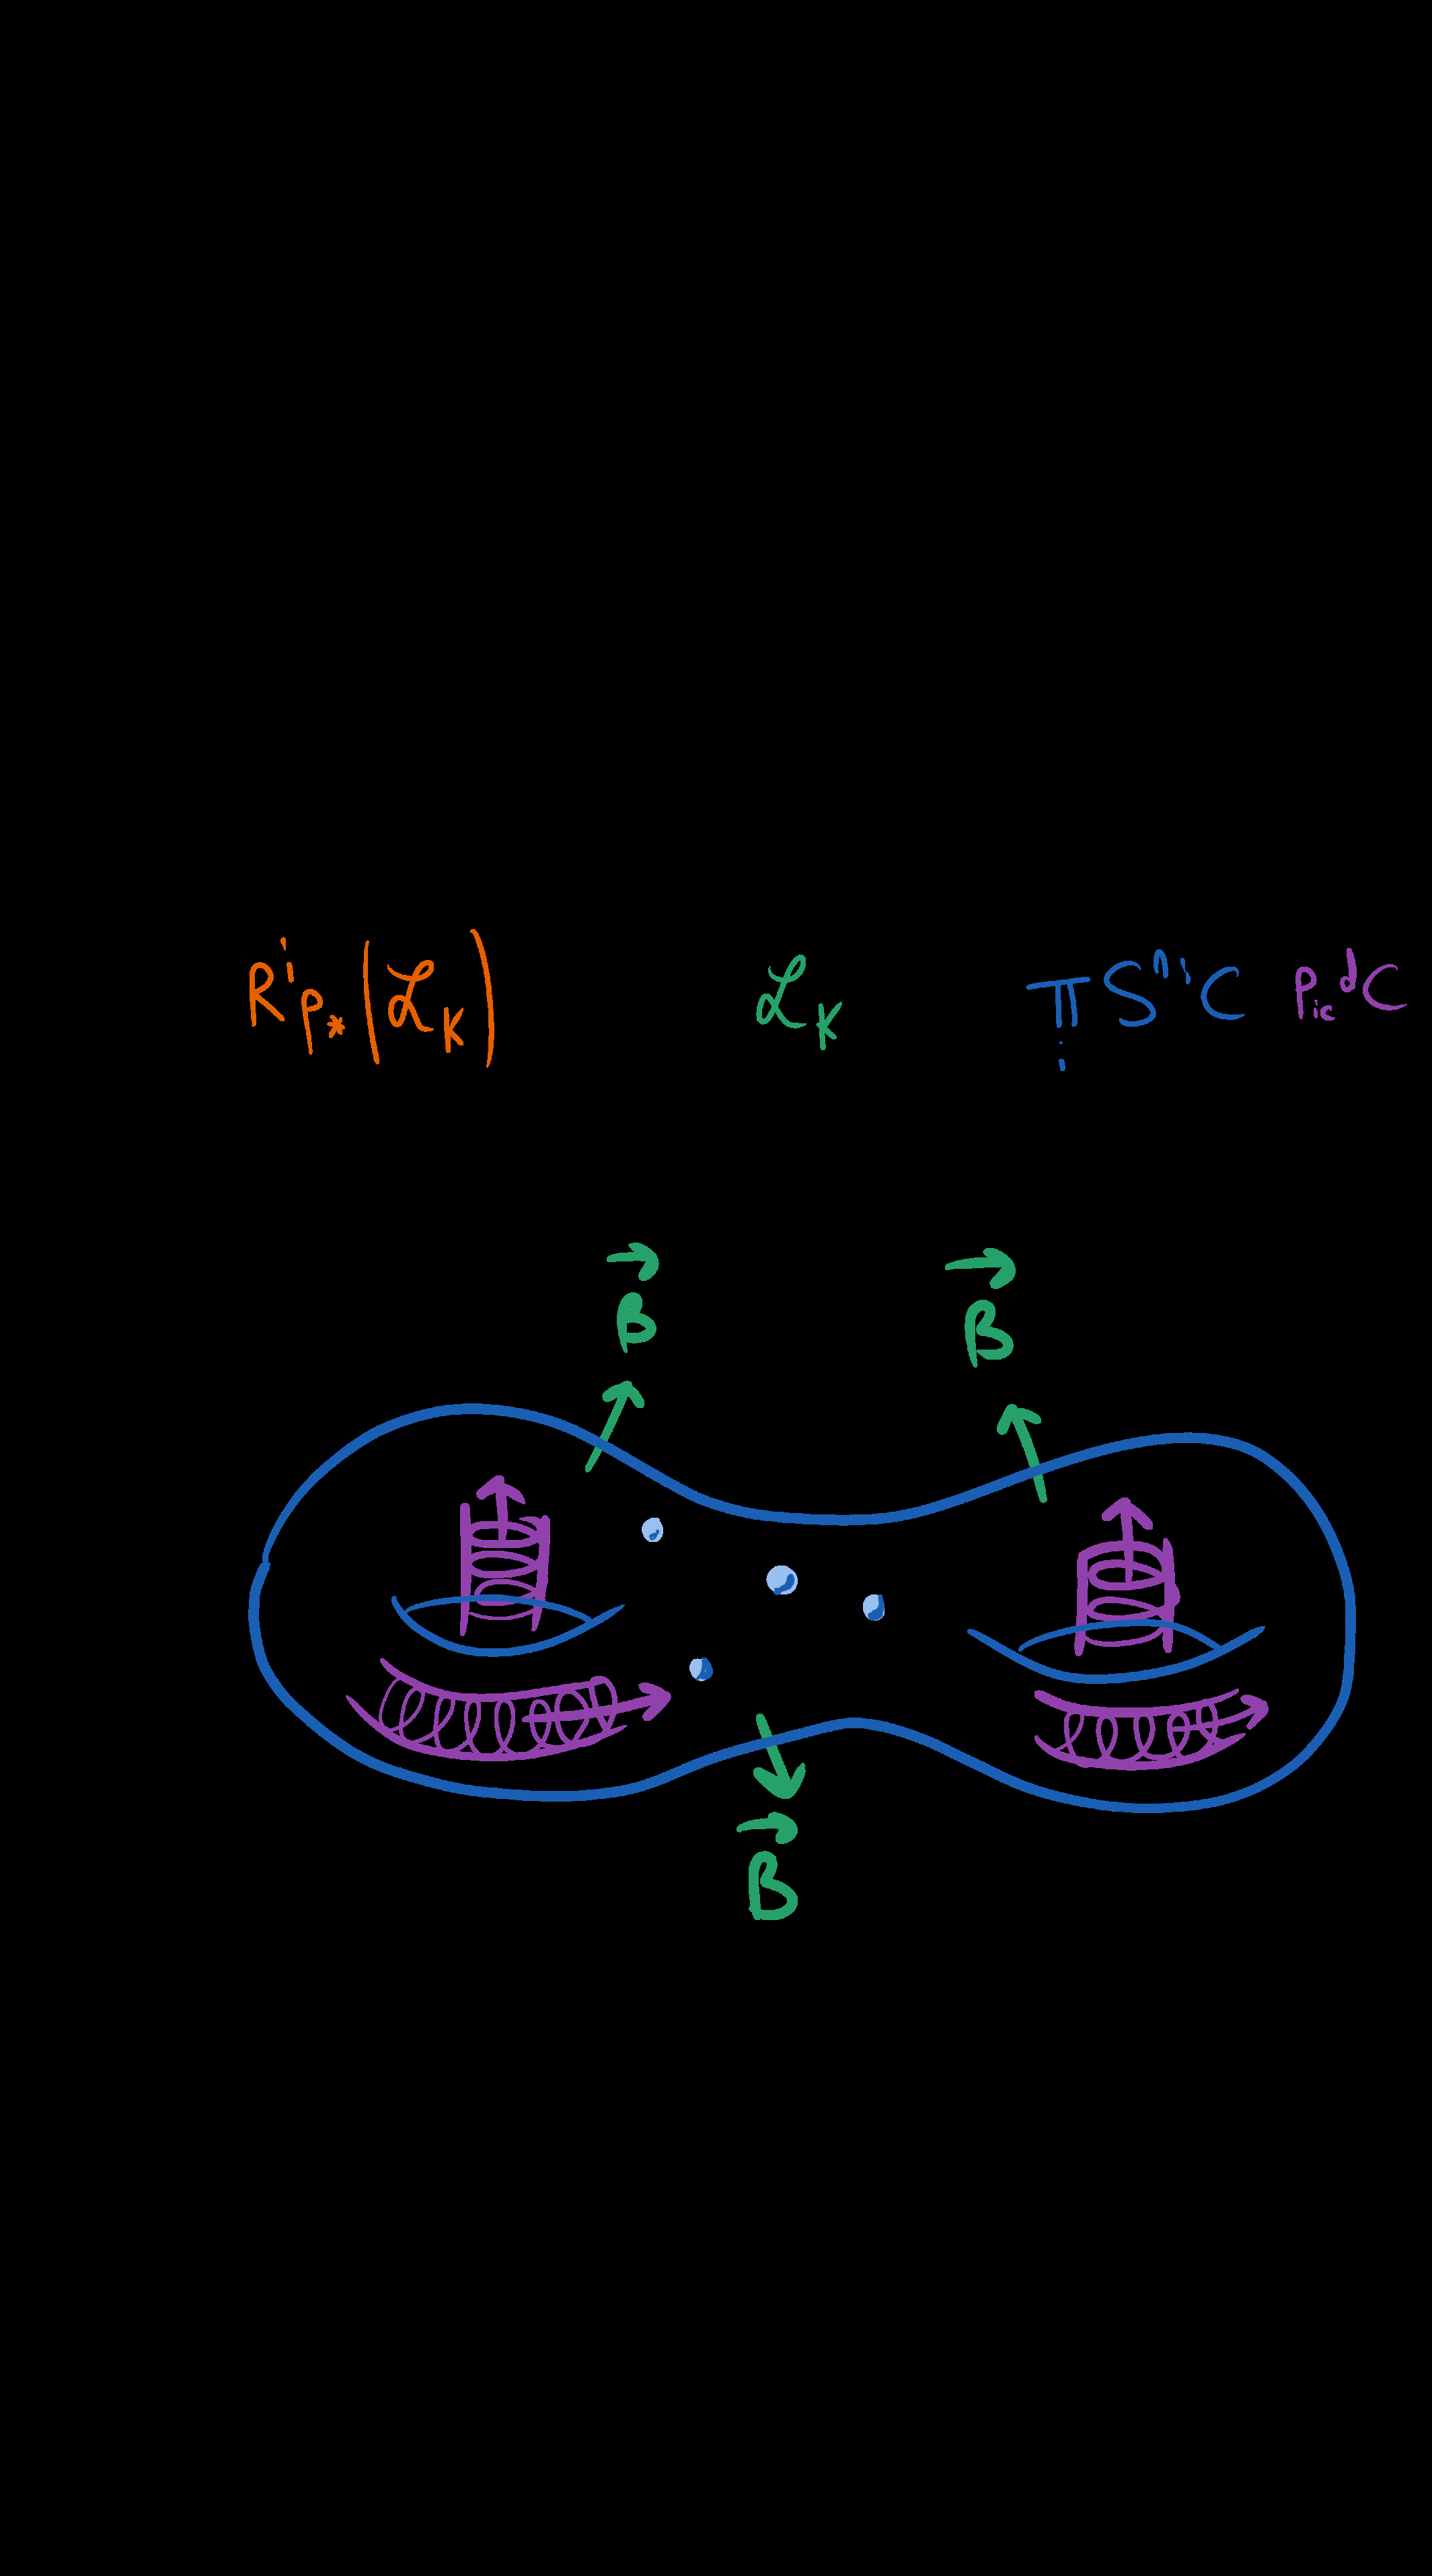 Rⁱp_*(ℒ_K) ℒ_K ∏_i S^{n_i}C Pic^d C
B⃗ B⃗
B⃗